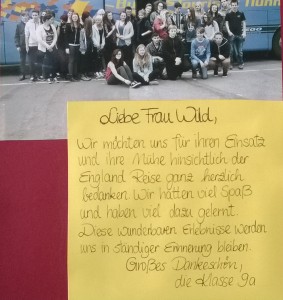 Liebe Frau Wild,
Wir möchten uns für ihren Einsatz
und ihre Mühe hinsichtlich der
England Reise ganz herzlich
bedanken. Wir hatten viel Spaß
und haben viel dazu gelernt.
Diese wunderbaren Erlebnisse werden
uns in ständiger Erinnerung bleiben.
Großes Dankeschön,
die Klasse 9a